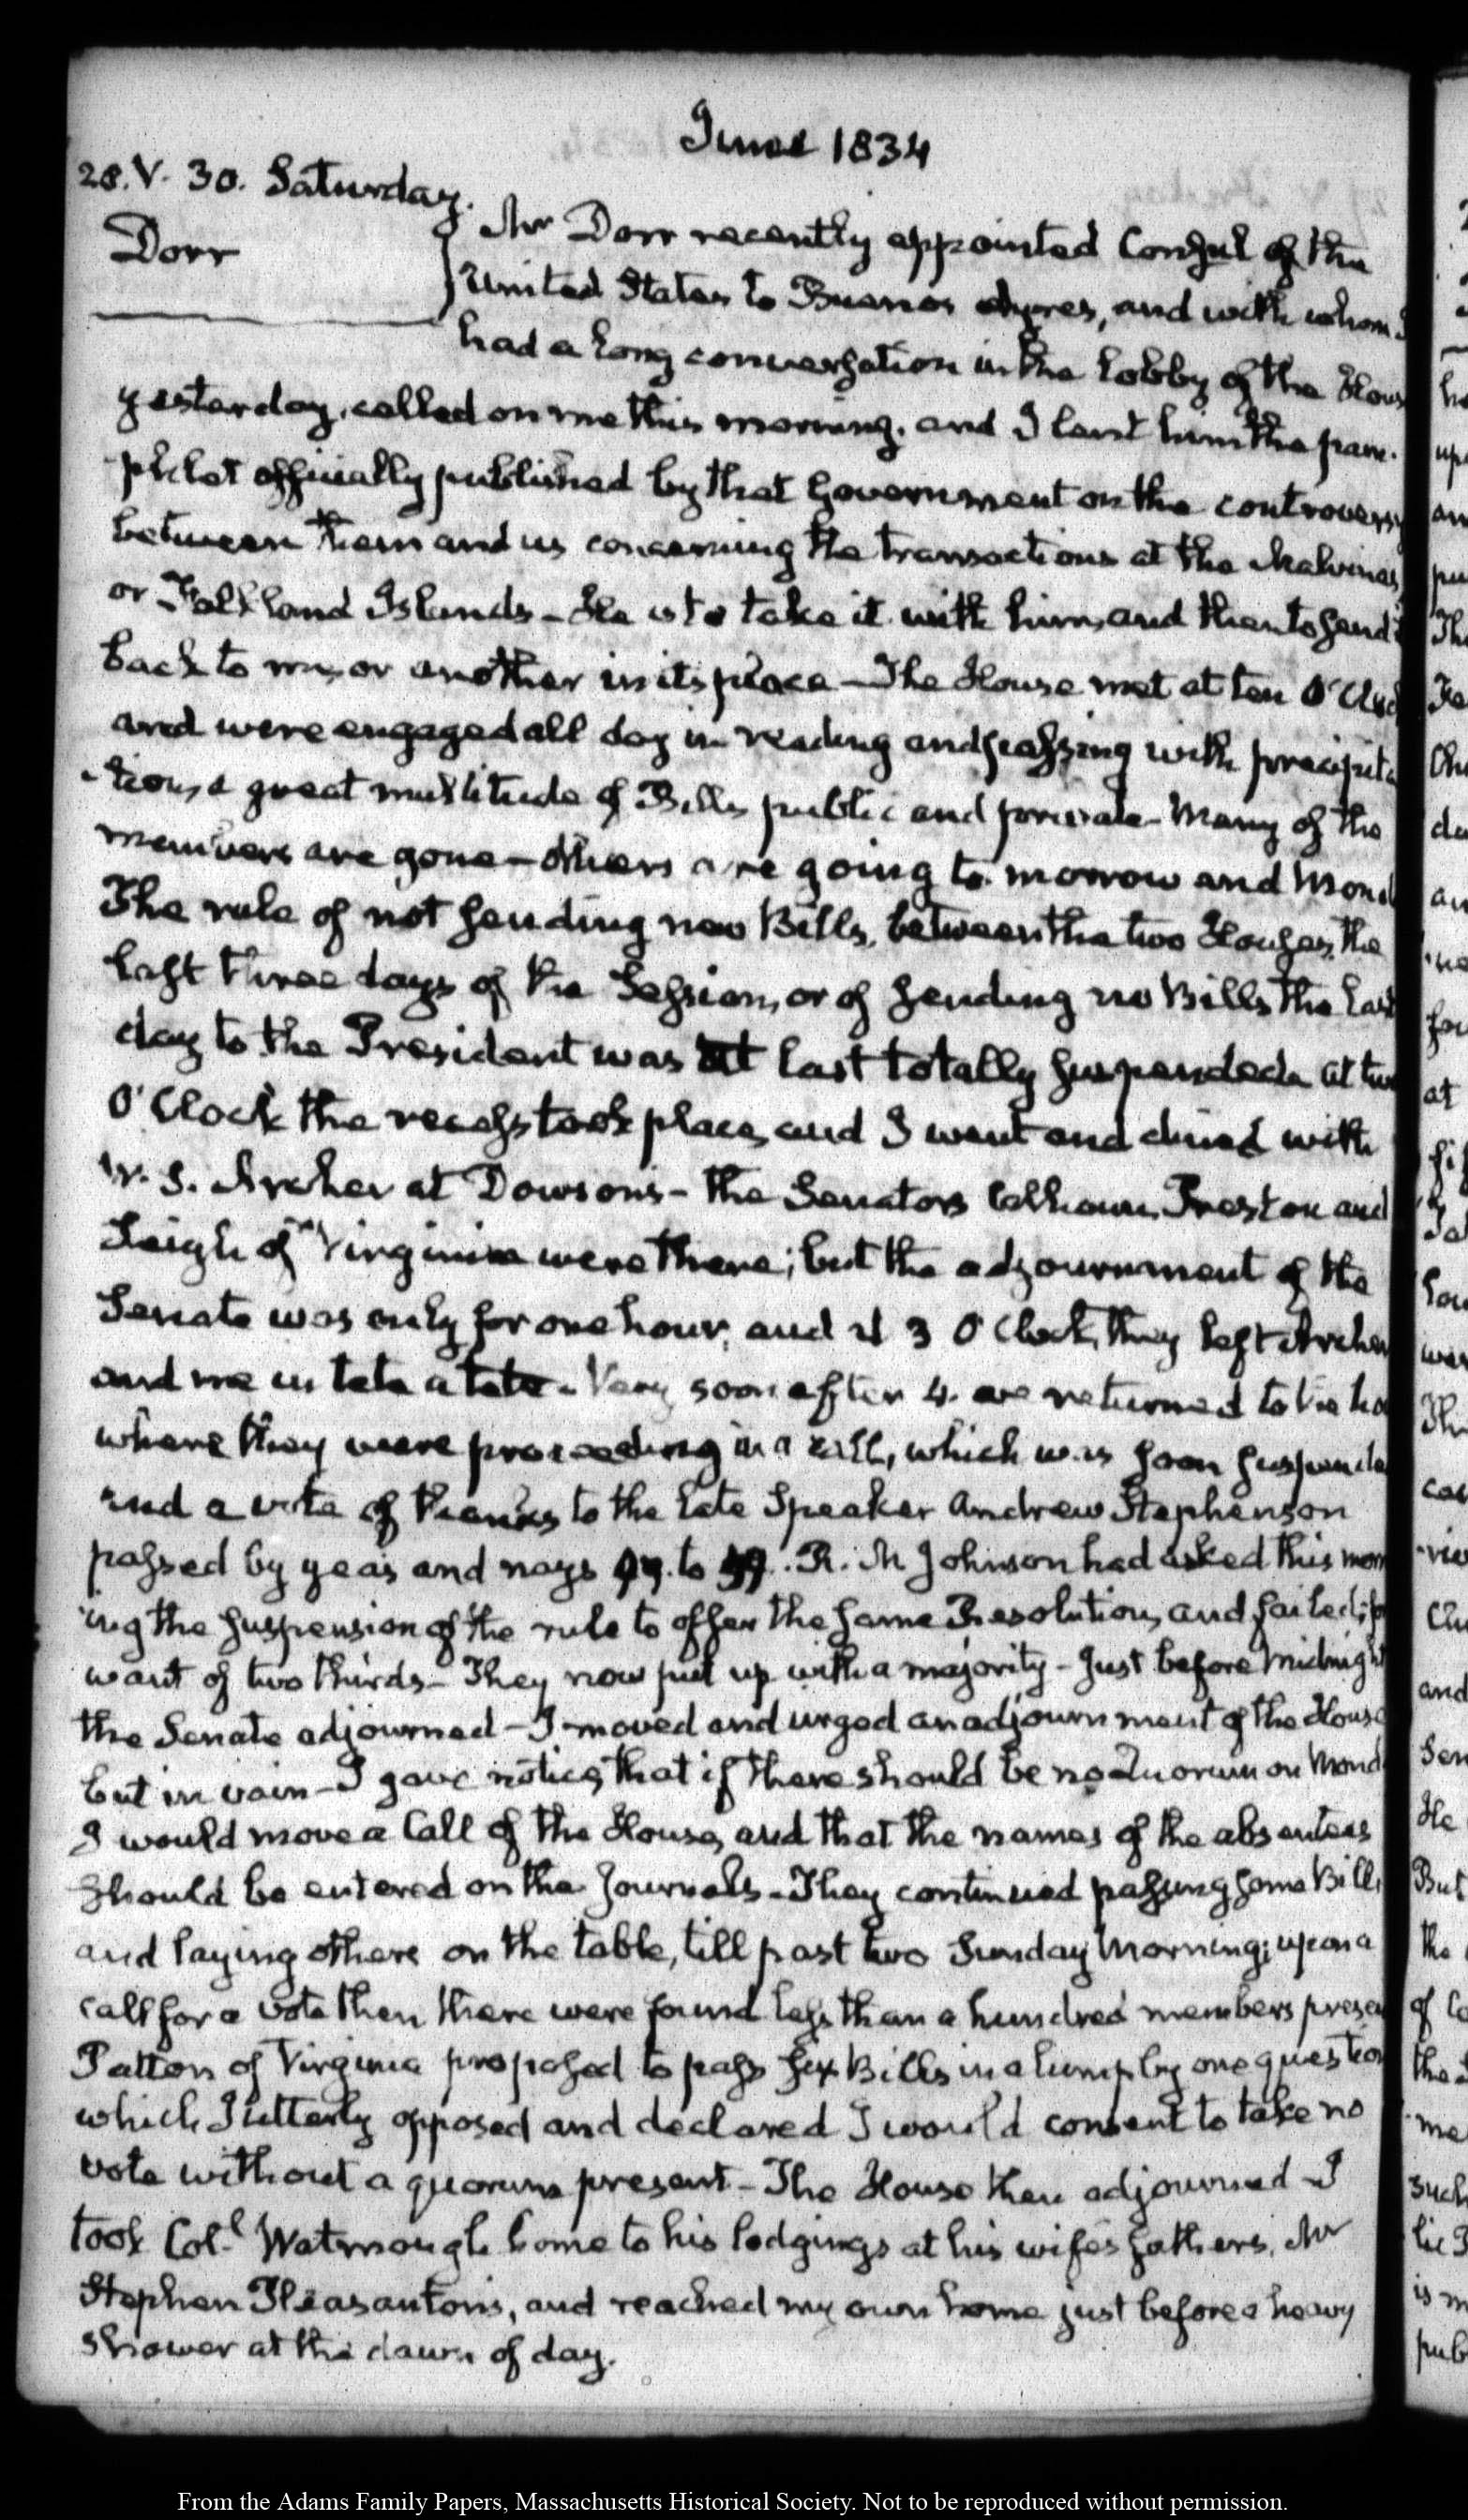 June 1834
28. V. 30. Saturday.
Dorr
Mr Dorr recently appointed Consul of the
United States to Buenos Ayres, and with whom I
had a long conversation in the lobby of the Hous
yesterday, called on me this morning. and I lent him the pam-
phlet officially published by that Government on the controversy
between them and us concerning the transactions at the Malvinas,
or Falkland Islands – He is to take it with him, and then to send it
back to me, or another in its place – The House met at ten O'Cloc
and were engaged all day in reading and passing with precipita
-tion, a great multitude of Bills public and private – Many of the
members are gone – others are going to-morrow and Mond
The rule of not sending new Bills, between the two Houses, the
last three days of the Session, or of sending no Bills the last
day to the President was at last totally suspended. at two
O'Clock the recess took place, and I went and dined with
W. S. Archer at Dowson's – the Senators Calhoun, Preston and
Leigh of Virginia were there; but the adjournment of the
Senate was only for one hour, and at 3 O'Clock, they left Archer
and me in tete a tete. Very soon after 4. we returned to the ho
where they were proceeding in a call, which was soon suspende
and a vote of thanks to the late Speaker Andrew Stephenson
passed by yeas and nays to R. M Johnson had asked this morn
ing the suspension of the rule to offer the same Resolution, and failed, fo
want of two thirds – They now put up with a majority – Just before Midnight
the Senate adjourned – I moved and urged an adjournment of the House
but in vain – I gave notice, that if there should be no Quorum on Mond
I would move a Call of the House, and that the names of the absentees
should be entered on the Journals – They continued passing some Bills,
and laying others on the table, till past two Sunday Morning; upon a
call for a vote then there were found less than a hundred members presen
Patton of Virginia proposed to pass six Bills in a lump by one question
which I utterly opposed and declared I would consent to take no
vote without a quorum present – The House then adjourned – I
took Col.l Watmough home to his lodgings at his wife's fathers, Mr
Stephen Pleasanton's, and reached my own home just before a heavy
shower at the dawn of day.
From the Adams Family Papers, Massachusetts Historical Society. Not to be reproduced without permission.